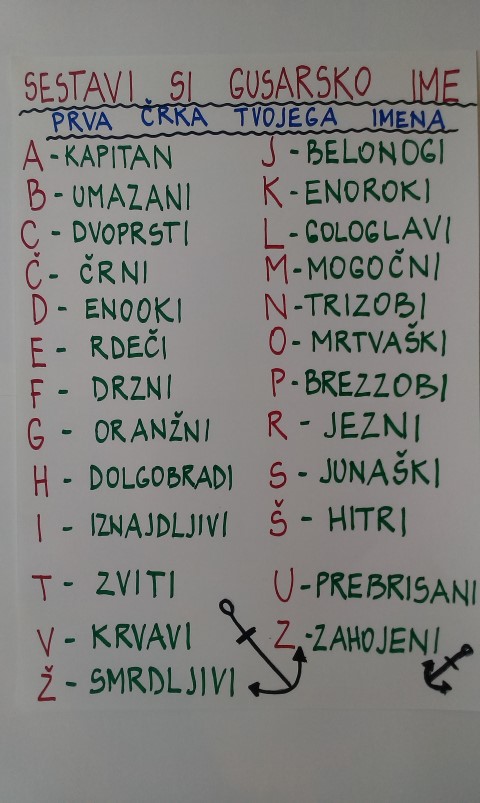 SESTAVI SI GUSARSKO IME
PRVA ČRKA TVOJEGA IMENA
A - KAPITAN
B - UMAZANI
C - DVOPRSTI
Č - ČRNI
D - ENOOKI
E - RDEČI
F - DRZNI
G - ORANŽNI
H - DOLGOBRADI
I - IZNAJDLJIVI
T - ZVITI
V - KRVAVI
Ž - SMRDLJIVI
J - BELONOGI
K - ENOROKI
L - GOLOGLAVI
M - MOGOČNI
N - TRIZOBI
O - MRTVAŠKI
P - BREZZOBI
R - JEZNI
S - JUNAŠKI
Š - HITRI
U - PREBRISANI
Z - ZAHOJENI